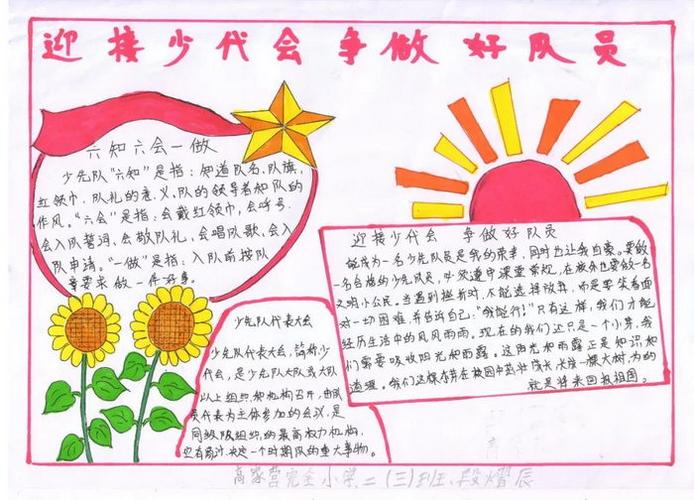 迎接少代会 争做好队员
六知六会一做
少先队“六知”是指：知道队名、队旗、
红领巾、队礼的意义、队的领导者和队的
作风。“六会”是指：会戴红领巾，会呼号，
会入队誓词，会敬队礼，会唱队歌，会入
队申请。“一做”是指：入队前按队
章要求做一件好事。
迎接少代会 争做好队员
能成为一名少先队员是我的荣幸，同时也让我自豪。要做
一名合格的少先队员，必须遵守课堂常规，在校外也要做一名
文明小公民。当遇到挫折时，不能选择放弃，而是要笑着面
对一切困难，并告诉自己，“我能行！”只有这样，我们才能
经历生活中的风风雨雨。现在的我们还只是一个小芽，我
们需要吸收阳光和雨露。这阳光和雨露正是知识和
道理。我们这棵小芽在校园中茁壮成长，长成一棵大树，为的
就是将来回报祖国。
少先队代表大会
少先队代表大会，简称少
代会，是少先队大队或大队
以上组织和机构召开，由队
员代表为主体参加的会议，是
同级队组织的最高权力机构，
它有商讨、决定一个时期队的重大事物。
高家营完全小学二（三）班 段熠辰